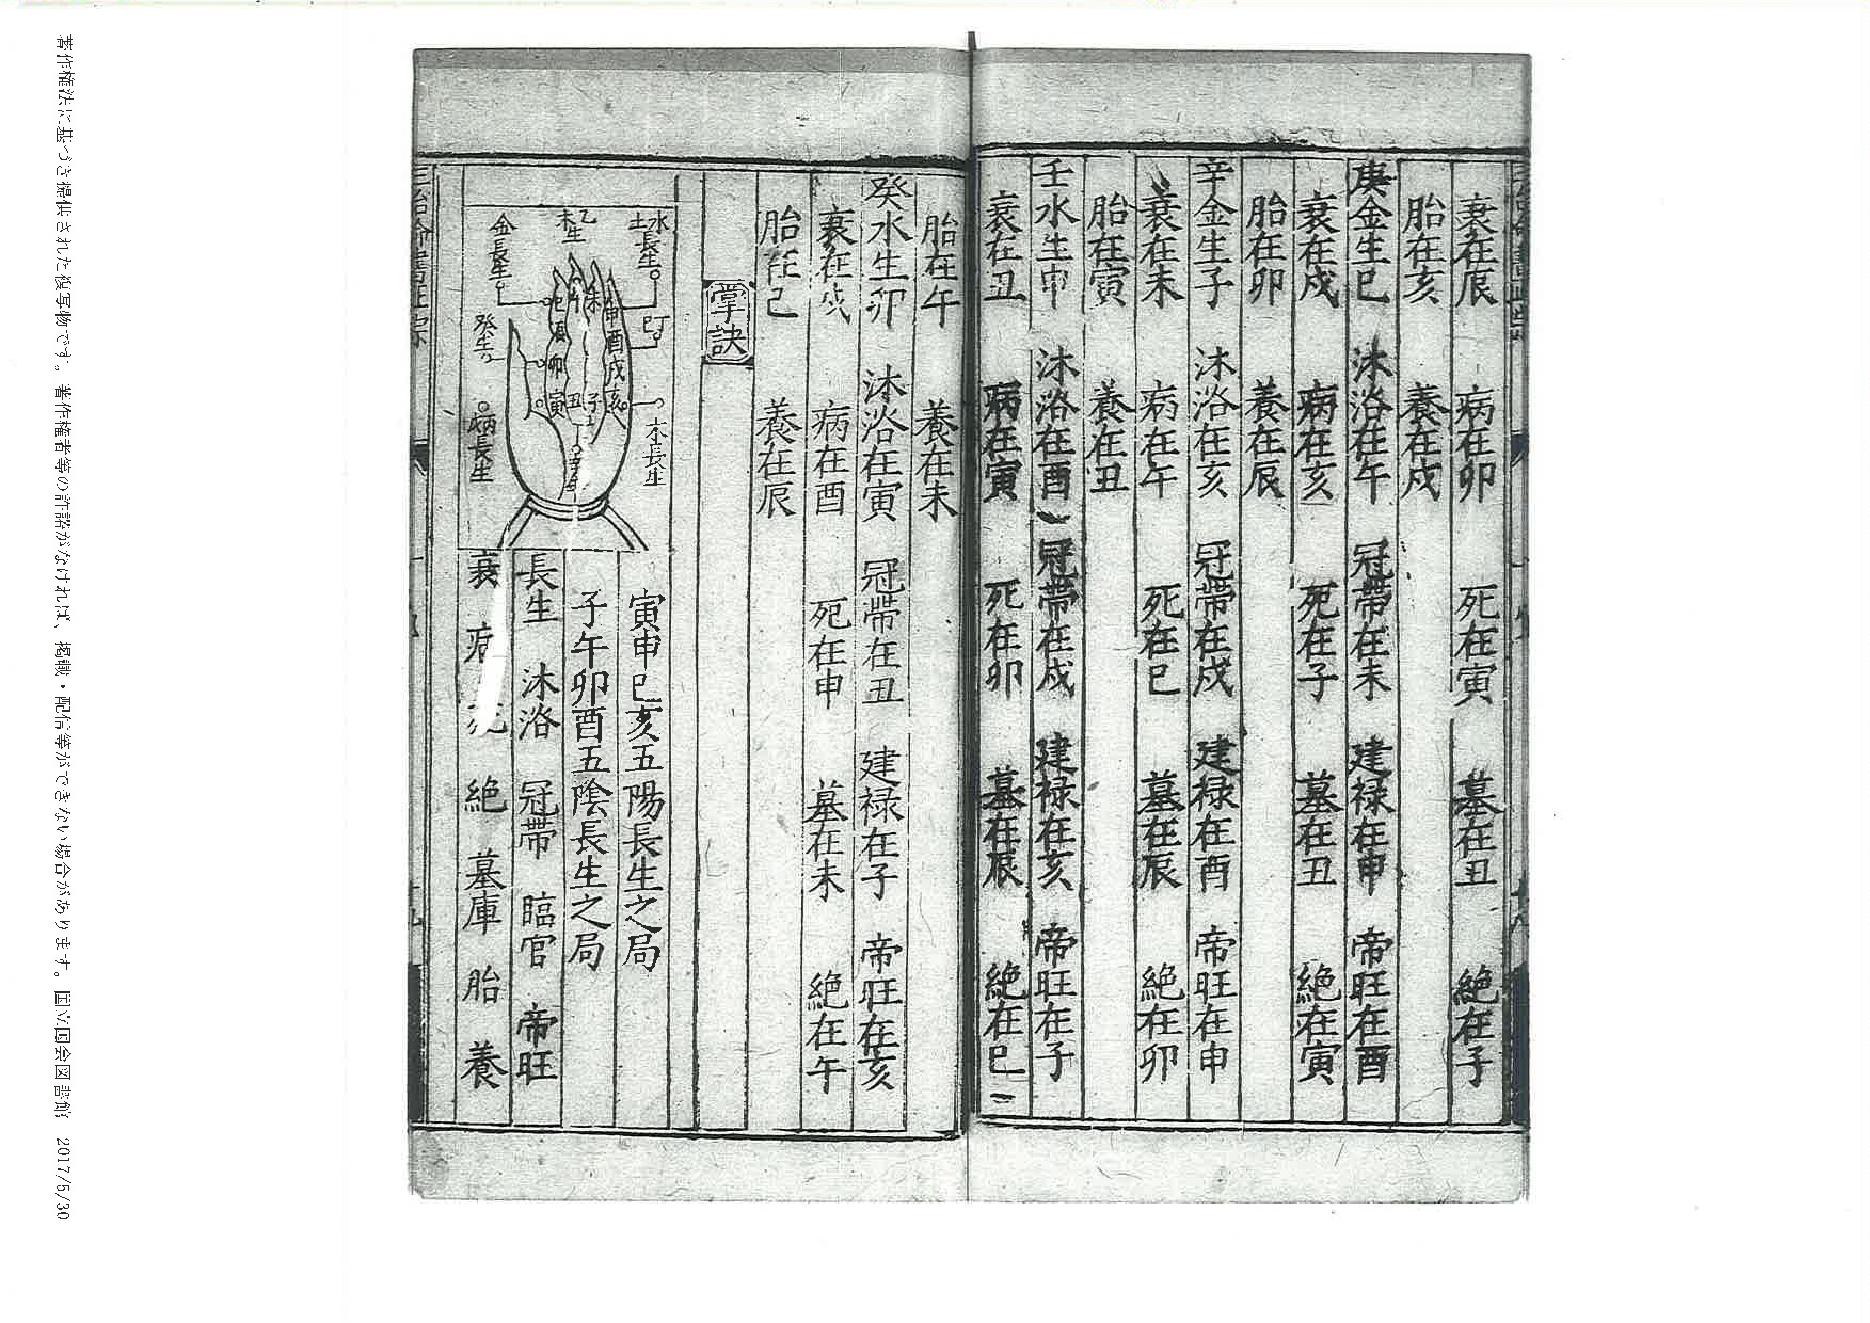 衰在辰　病在卯　死在寅　墓在丑　絶在子
胎在亥　養在戍
庚金生巳　沐浴在午　冠帶在未　建禄在申　帝旺在酉
衰在戍　病在亥　死在子　墓在丑　絶在寅
胎在卯　養在辰
辛金生子　沐浴在亥　冠帶在戍　建禄在酉　帝旺在申
衰在未　病在午　死在巳　墓在辰　絶在卯
胎在寅　養在丑
壬水生申　沐浴在酉　冠帶在戍　建禄在亥　帝旺在子
衰在丑　病在寅　死在卯　墓在辰　絶在巳
胎在午　養在未
癸水生卯　沐浴在寅　冠帶在丑　建禄在子　帝旺在亥
衰在戍　病在酉　死在申　墓在未　絶在午
胎在巳　養在辰
掌訣
水土長生
丁巳
木長生
乙木生
金長生
癸生
病長生
巳午未申
辰酉
卯戍
寅丑子亥
寅申巳亥五陽長生之局
子午卯酉五陰長生之局
長生　沐浴　冠帶　臨官　帝旺
衰　病　死　絶　墓庫　胎　養
著作権法に基づき提供された複写物です。著作権者等の許諾がなければ、掲載・配信等ができない場合があります。国立国会図書館　2017/5/30